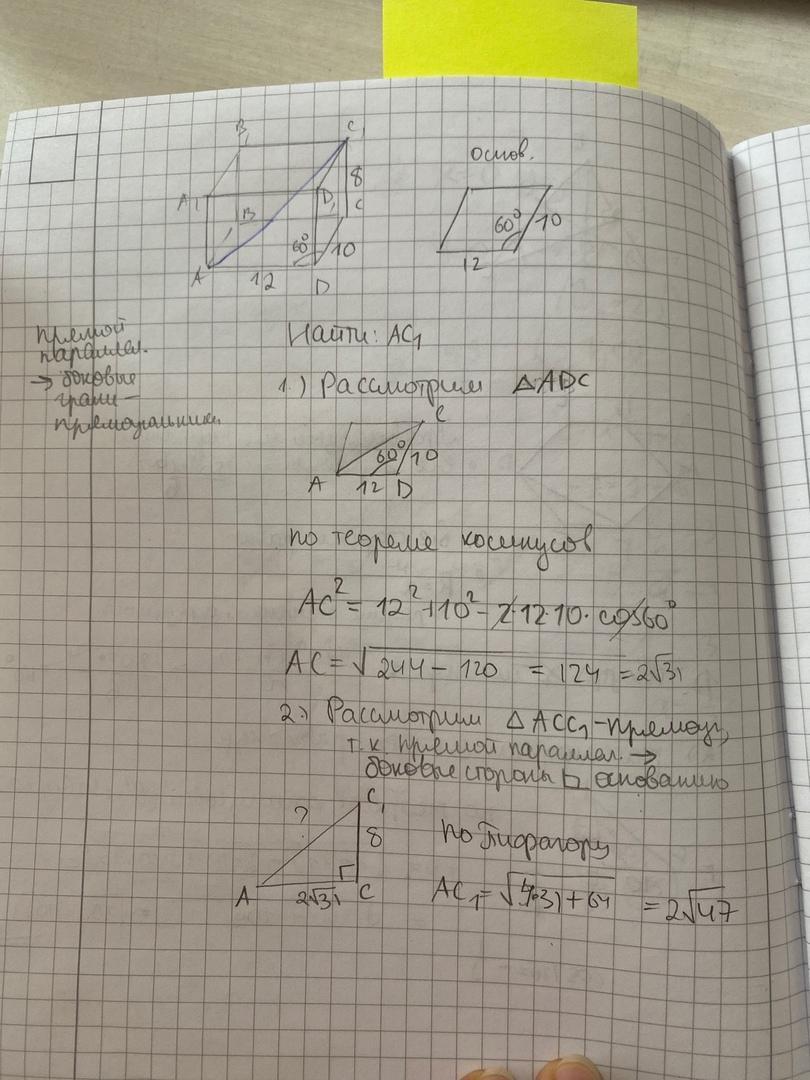 B₁ C₁
основ.
A₁ D₁ 8
B C
60° 10
60° 10
A 12 D
12
прямой
параллел.
→ боковые
грани –
прямоугольники.
Найти: AC₁
1.) Рассмотрим △ADC
C
60° 10
A 12 D
по теореме косинусов
AC² = 12² + 10² − 2·12·10·cos60°
AC = √244 − 120 = 124 = 2√31
2.) Рассмотрим △ACC₁ – прямоуг,
т.к прямой параллел. →
боковые стороны ⊾ основанию
C₁
?
8
A 2√31 C
по Пифагору
AC₁ = √4·31 + 64 = 2√47